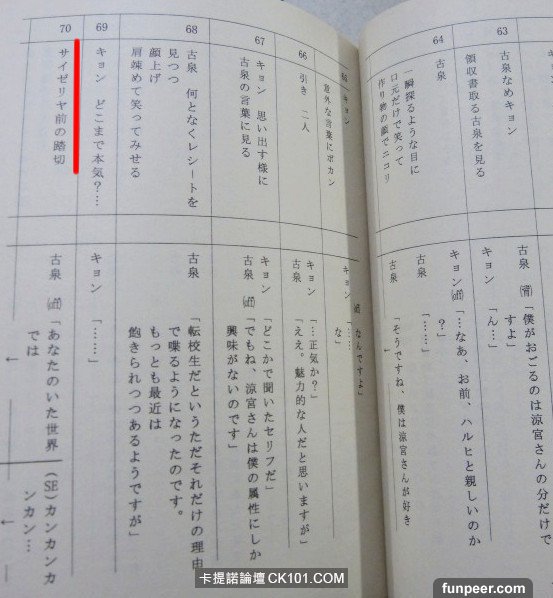 63
古泉なめキョン
領収書取る古泉を見る
64
古泉
一瞬探るような目に
口元だけで笑って
作り物の顔でニコリ
65
キョン
意外な言葉にポカン
66
引き 二人
67
キョン 思い出す様に
古泉の言葉に見る
68
古泉 何となくレシートを
見つつ
顔上げ
肩竦めて笑ってみせる
69
キョン どこまで本気?…
70
サイゼリヤ前の踏切
古泉(背)「僕がおごるのは涼宮さんの分だけで
すよ」
キョン 「ん…」
キョン(off)「…なあ、お前、ハルヒと親しいのか
?」
古泉 「……」
古泉 「そうですね、僕は涼宮さんが好き
なんですよ」
キョン 「……
な」
キョン 「…正気か?」
古泉 「ええ。魅力的な人だと思いますが」
キョン 「どこかで聞いたセリフだ」
古泉(off)「でもね、涼宮さんは僕の属性にしか
興味がないのです」
古泉 「転校生だというただそれだけの理由
で喋るようになったのです。
もっとも最近は
飽きられつつあるようですが」
キョン 「……」
古泉(off)「あなたのいた世界
では
(SE)カンカンカ
ンカン…
卡提諾論壇 CK101.COM
funpeer.com